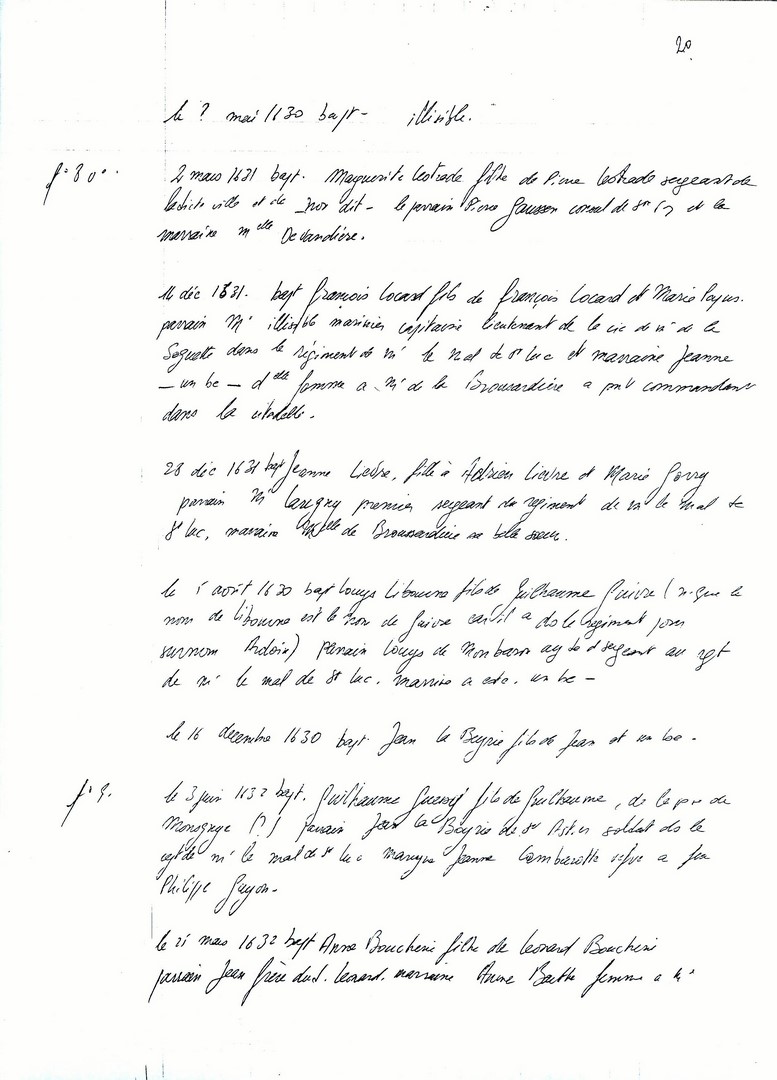 20
le ? mai 1630 bapt - illisible.
f° 8 v°.
2 mars 1631 bapt. Marguerite Lestrade fille de Pierre Lestrade sergeant de
ladicte ville et de non dit - le parrain Pierre Gausson consul de et la
marraine melle Devandière.
14 déc 1631. bapt François Locard fils de François Locard et Marie
parrain Mr illisible marinier capitaine lieutenant de la cie de mr de la
dans le régiment de mr le mal de st luc et marraine Jeanne
- un bc - delle femme a mr de la Broussardière a pnt commandant
dans la citadelle.
28 déc 1631 bapt Jeanne Lievre, fille à Adrien Lievre et Marie Gorry
parrain Mr premier sergeant du régiment de mr le mal de
st luc, marraine Melle de Broussardière sa belle soeur.
le 1 août 1630 bapt Louys Libourne fils de Guilhaume Guivre (
nom de Libourne est le nom de Guivre car il a ds le régiment pour
surnom Ardoin) parrain Louys de Monbaron sergeant au rgt
de mr le mal de st luc. marrine a este. un bc -
le 16 décembre 1630 bapt. Jean la Beyrie fils de Jean et un bc -
f° 9.
le 3 juin 1632 bapt. Guilhaume fils de Guilhaume, de la de
(?) parrain Jean la Beyrie de st soldat ds le
rgt de mr le mal de st luc Jeanne a feu
Philippe Guyon -
le 21 mars 1632 bapt Anne Boucherie fille de Leonard Boucherie
parrain Jean frère dud. Leonard. marraine Anne femme a mr